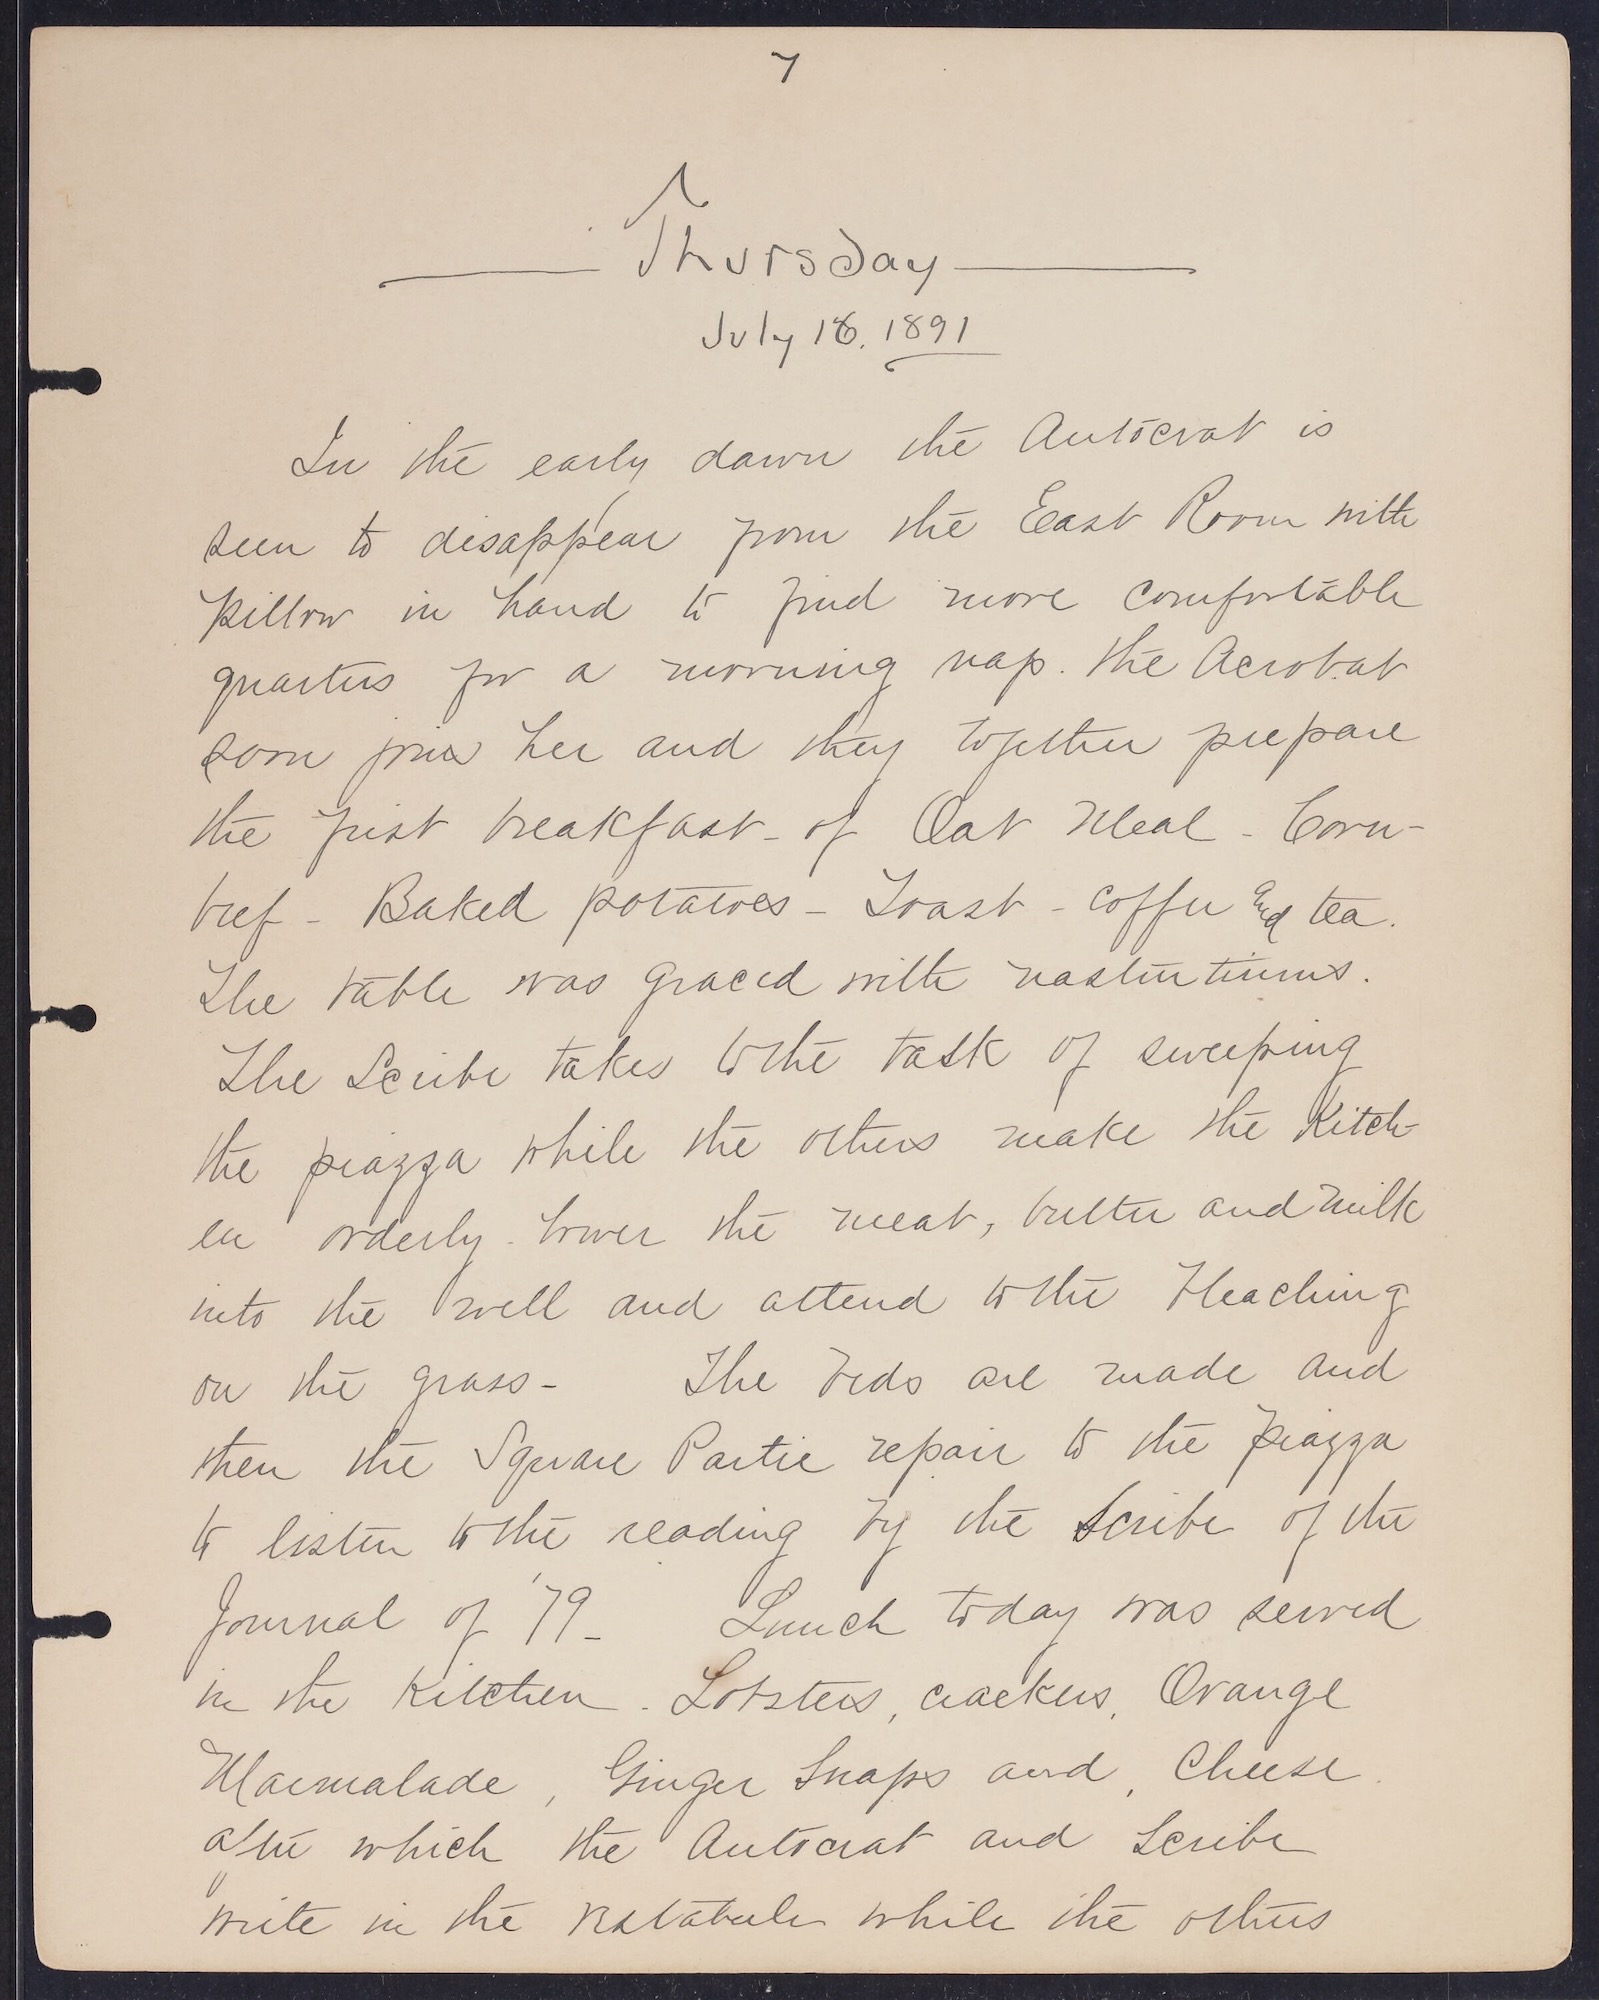 7
Thursday
July 16. 1891
In the early dawn the Autocrat is
seen to disappear from the East Room with
pillow in hand to find more comfortable
quarters for a morning nap. The Acrobat
soon joins her and they together prepare
the first breakfast - of Oat Meal - Corn-
beef - Baked potatoes - Toast - coffee and tea.
The table was graced with nasturtiums.
The Scribe takes to the task of sweeping
the piazza while the others make the Kitch-
en orderly - lower the meat, butter and milk
into the well and attend to the bleaching
on the grass - The beds are made and
then the Square Partie repair to the piazza
to listen to the reading by the Scribe of the
Journal of '79 - Lunch today was served
in the Kitchen - Lobsters, crackers, Orange
Marmalade, Ginger Snaps and, Cheese.
after which the Autocrat and Scribe
write in the vestabule while the others